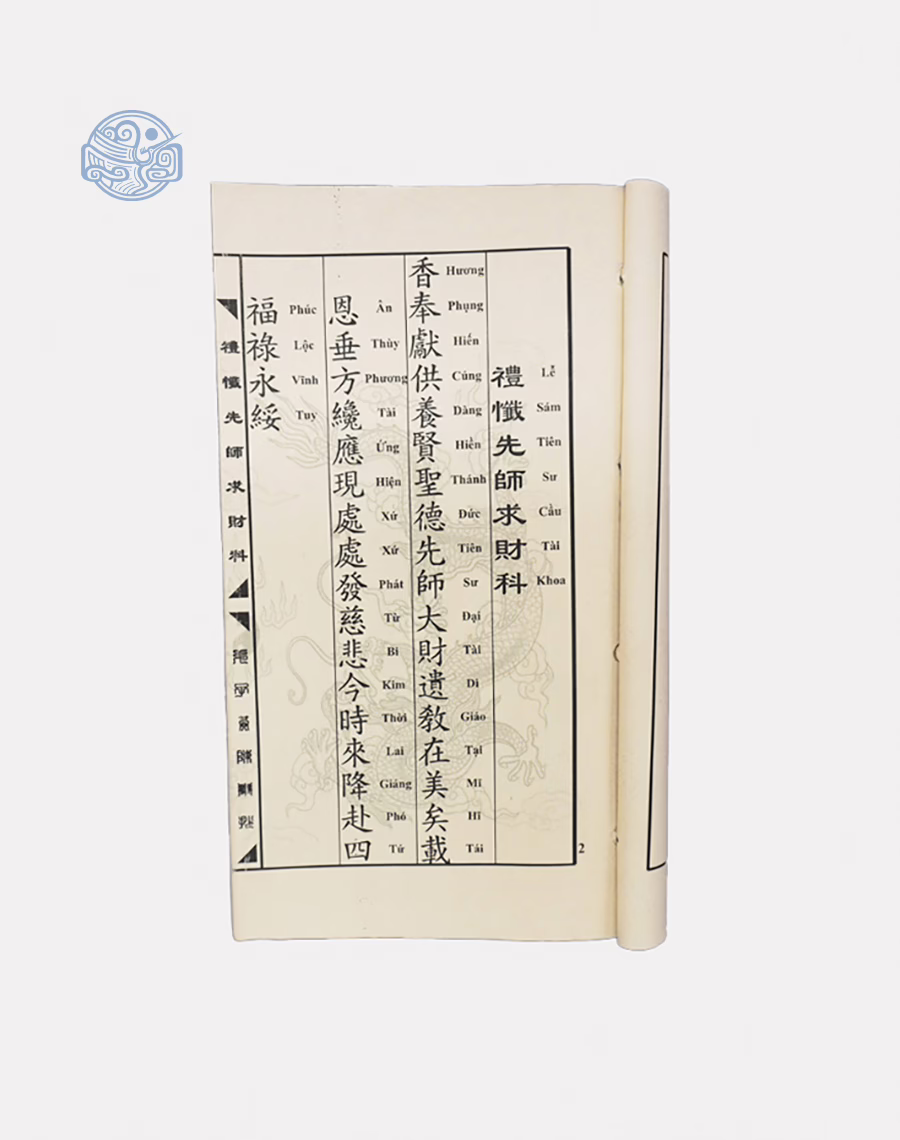 禮懺先師求財科
Lễ Sám Tiên Sư Cầu Tài Khoa
香奉獻供養賢聖德先師大財遺敎在美矣載
Hương Phụng Hiến Cúng Dàng Hiền Thánh Đức Tiên Sư Đại Tài Di Giáo Tại Mĩ Hĩ Tái
恩垂方纔應現處處發慈悲今時來降赴四
Ân Thùy Phương Tài Ứng Hiện Xứ Xứ Phát Từ Bi Kim Thời Lai Giáng Phó Tứ
福祿永綏
Phúc Lộc Vĩnh Tuy
禮懺先師求財科
2